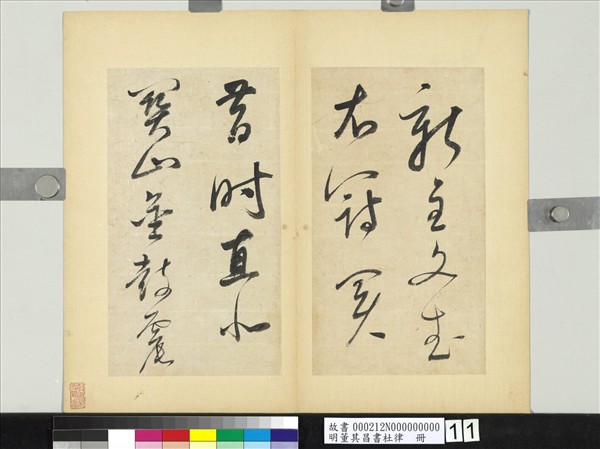 新主文武
衣冠異
昔時直北
關山金鼓震
故書 000212N000000000
明董其昌書杜律 冊
11